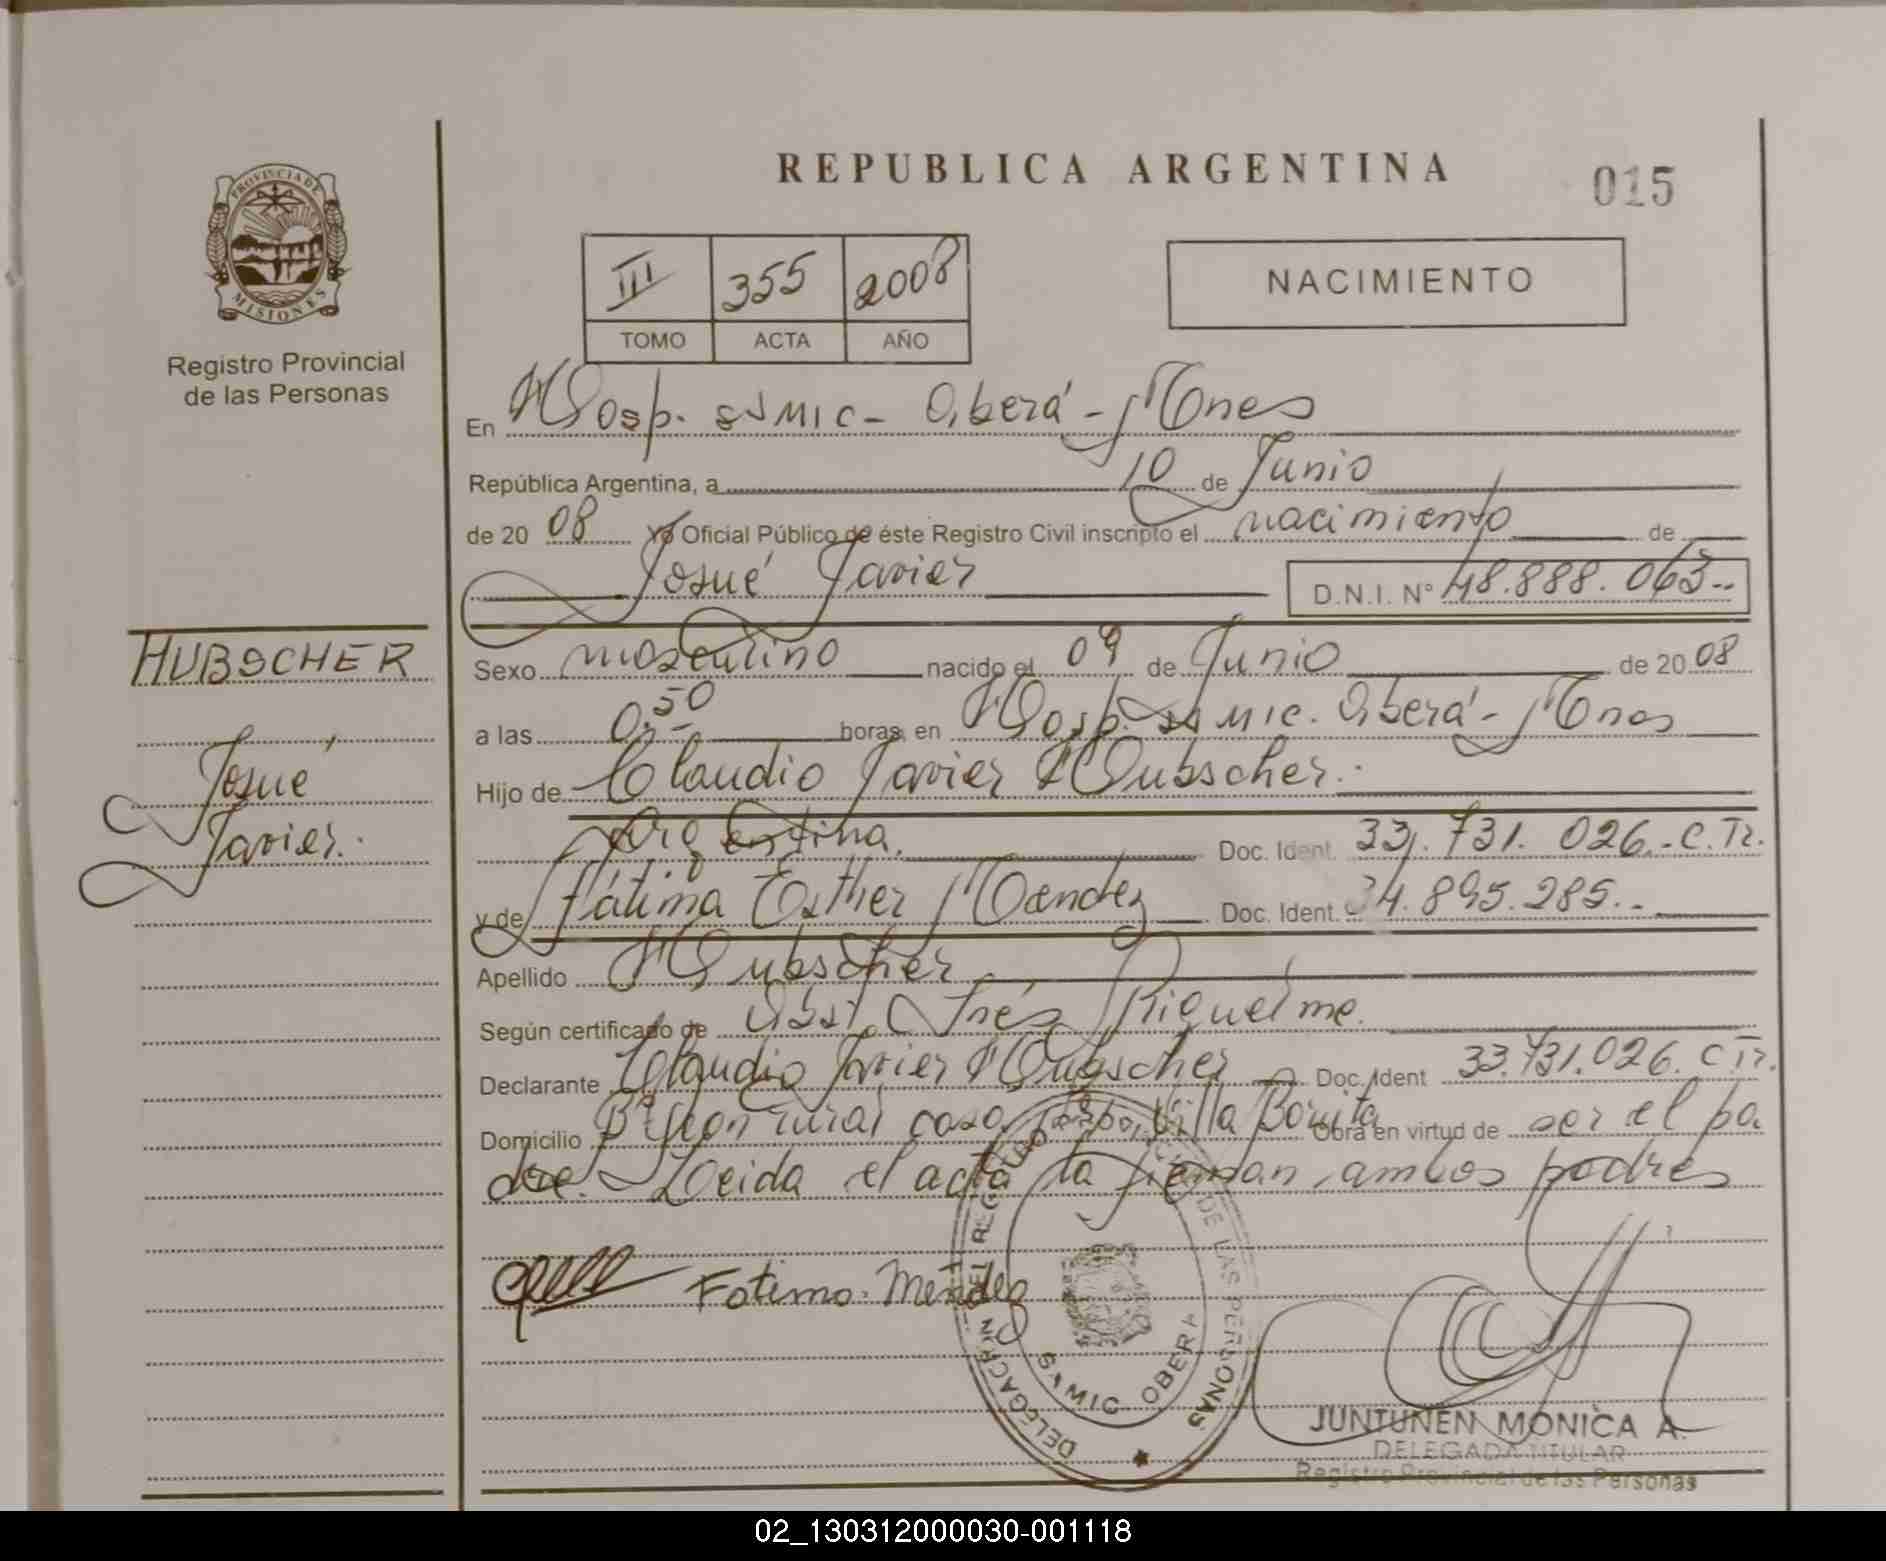 REPUBLICA ARGENTINA
015
PROVINCIA DE
MISIONES
Registro Provincial
de las Personas
III 355 2008
TOMO ACTA AÑO
NACIMIENTO
En Hosp. SAMIC - Oberá - Mnes
República Argentina, a 10 de Junio
de 20 08 Yo Oficial Público de éste Registro Civil inscripto el nacimiento de
Josué Javier D.N.I. Nº 48.888.063..
HUBSCHER
Josué
Javier.
Sexo masculino nacido el 09 de Junio de 20 08
a las 0,50 horas, en Hosp. SAMIC. Oberá - Mnes
Hijo de Claudio Javier Hubscher.
Argentina. Doc. Ident. 33.731.026.-C.Tr.
y de Fátima Esther Mendez Doc. Ident. 34.895.285..
Apellido Hubscher
Según certificado de Obst. Inés Riquelme.
Declarante Claudio Javier Hubscher Doc. Ident 33.731.026. C.Tr.
Domicilio Bº rural casa Villa Bonita Obra en virtud de ser el pa
dre. Leida el acta la firman ambos padres
Fatima Mendez
DELEGACION DEL REGISTRO DE LAS PERSONAS
SAMIC OBERA
JUNTUNEN MONICA A.
DELEGADA TITULAR
Registro Provincial de las Personas
02_130312000030-001118